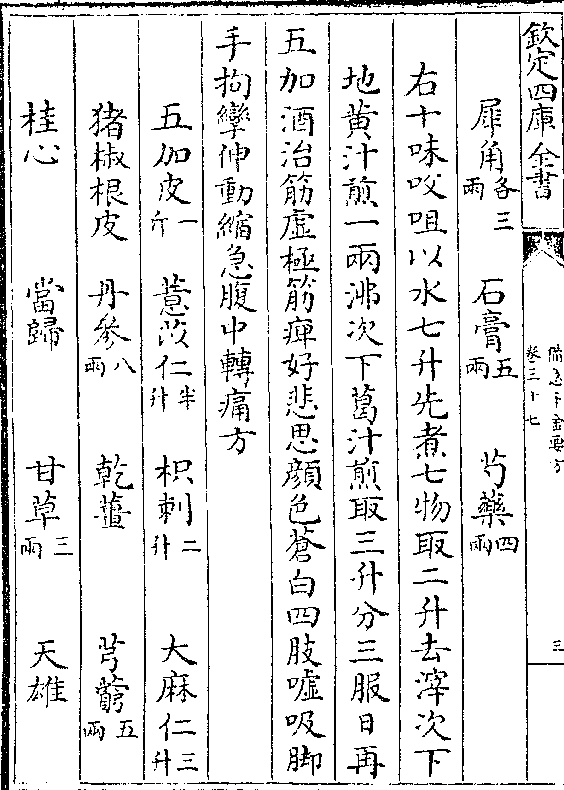 欽定四庫全書
備急千金要方
卷三十七
三
犀角各三兩 石膏五兩 芍藥四兩
右十味㕮咀以水七升先煮七物取二升去滓次下
地黃汁煎一兩沸次下葛汁煎取三升分三服日再
五加酒治筋虛極筋痺好悲思顔色蒼白四肢噓吸脚
手拘攣伸動縮急腹中轉痛方
五加皮一斤 薏苡仁半升 枳刺二升 大麻仁三升
豬椒根皮 丹參八兩 乾薑 芎藭五兩
桂心 當歸 甘草三兩 天雄